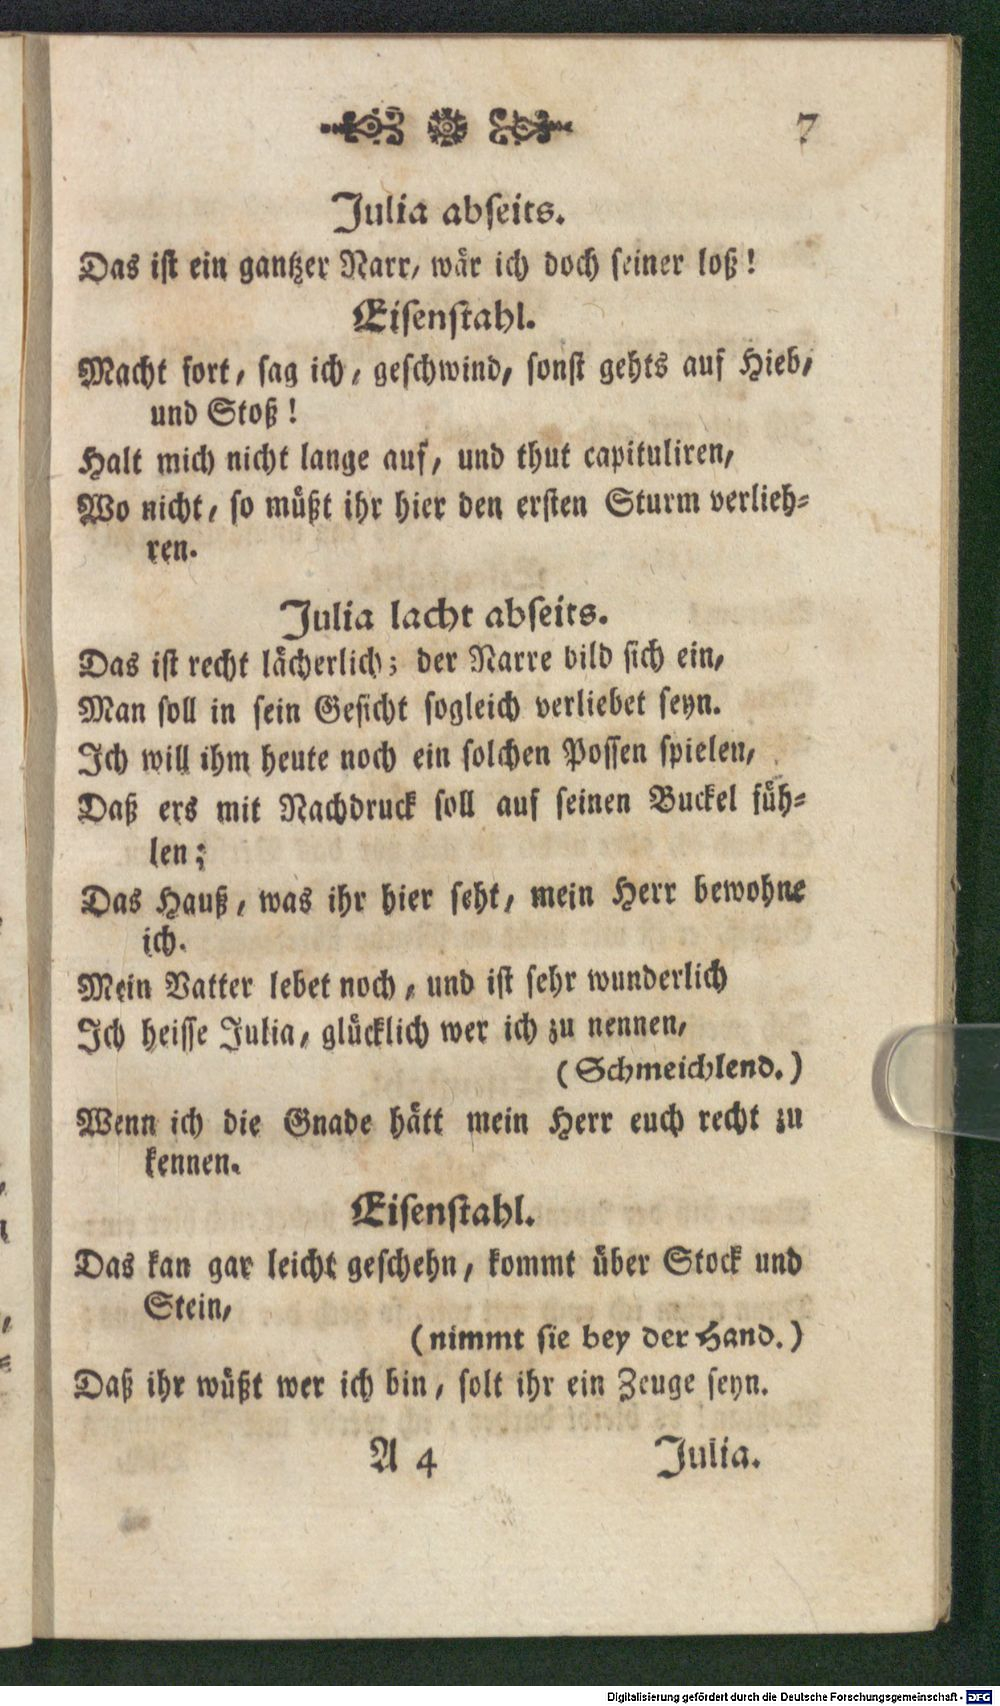 7
Julia abseits.
Das ist ein gantzer Narr, wär ich doch seiner loß!
Eisenstahl.
Macht fort, sag ich, geschwind, sonst gehts auf Hieb,
und Stoß!
Halt mich nicht lange auf, und thut capituliren,
Wo nicht, so müßt ihr hier den ersten Sturm verlieh-
ren.
Julia lacht abseits.
Das ist recht lächerlich; der Narre bild sich ein,
Man soll in sein Gesicht sogleich verliebet seyn.
Ich will ihm heute noch ein solchen Possen spielen,
Daß ers mit Nachdruck soll auf seinen Buckel füh-
len;
Das Hauß, was ihr hier seht, mein Herr bewohne
ich.
Mein Vatter lebet noch, und ist sehr wunderlich
Ich heisse Julia, glücklich wer ich zu nennen,
(Schmeichlend.)
Wenn ich die Gnade hätt mein Herr euch recht zu
kennen.
Eisenstahl.
Das kan gar leicht geschehn, kommt über Stock und
Stein,
(nimmt sie bey der Hand.)
Daß ihr wüßt wer ich bin, solt ihr ein Zeuge seyn.
A 4 Julia.
Digitalisierung gefördert durch die Deutsche Forschungsgemeinschaft - DFG